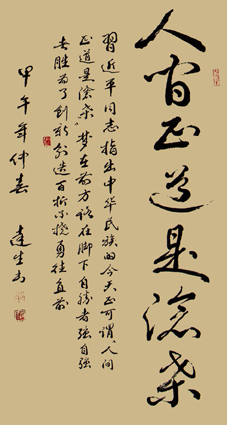 人间正道是沧桑
習近平同志指出中华民族的今天正可謂人间
正道是滄桑梦在前方路在脚下自勝者强自强
者胜为了创新创造百折不挠勇往直前
甲午年仲春
达生书